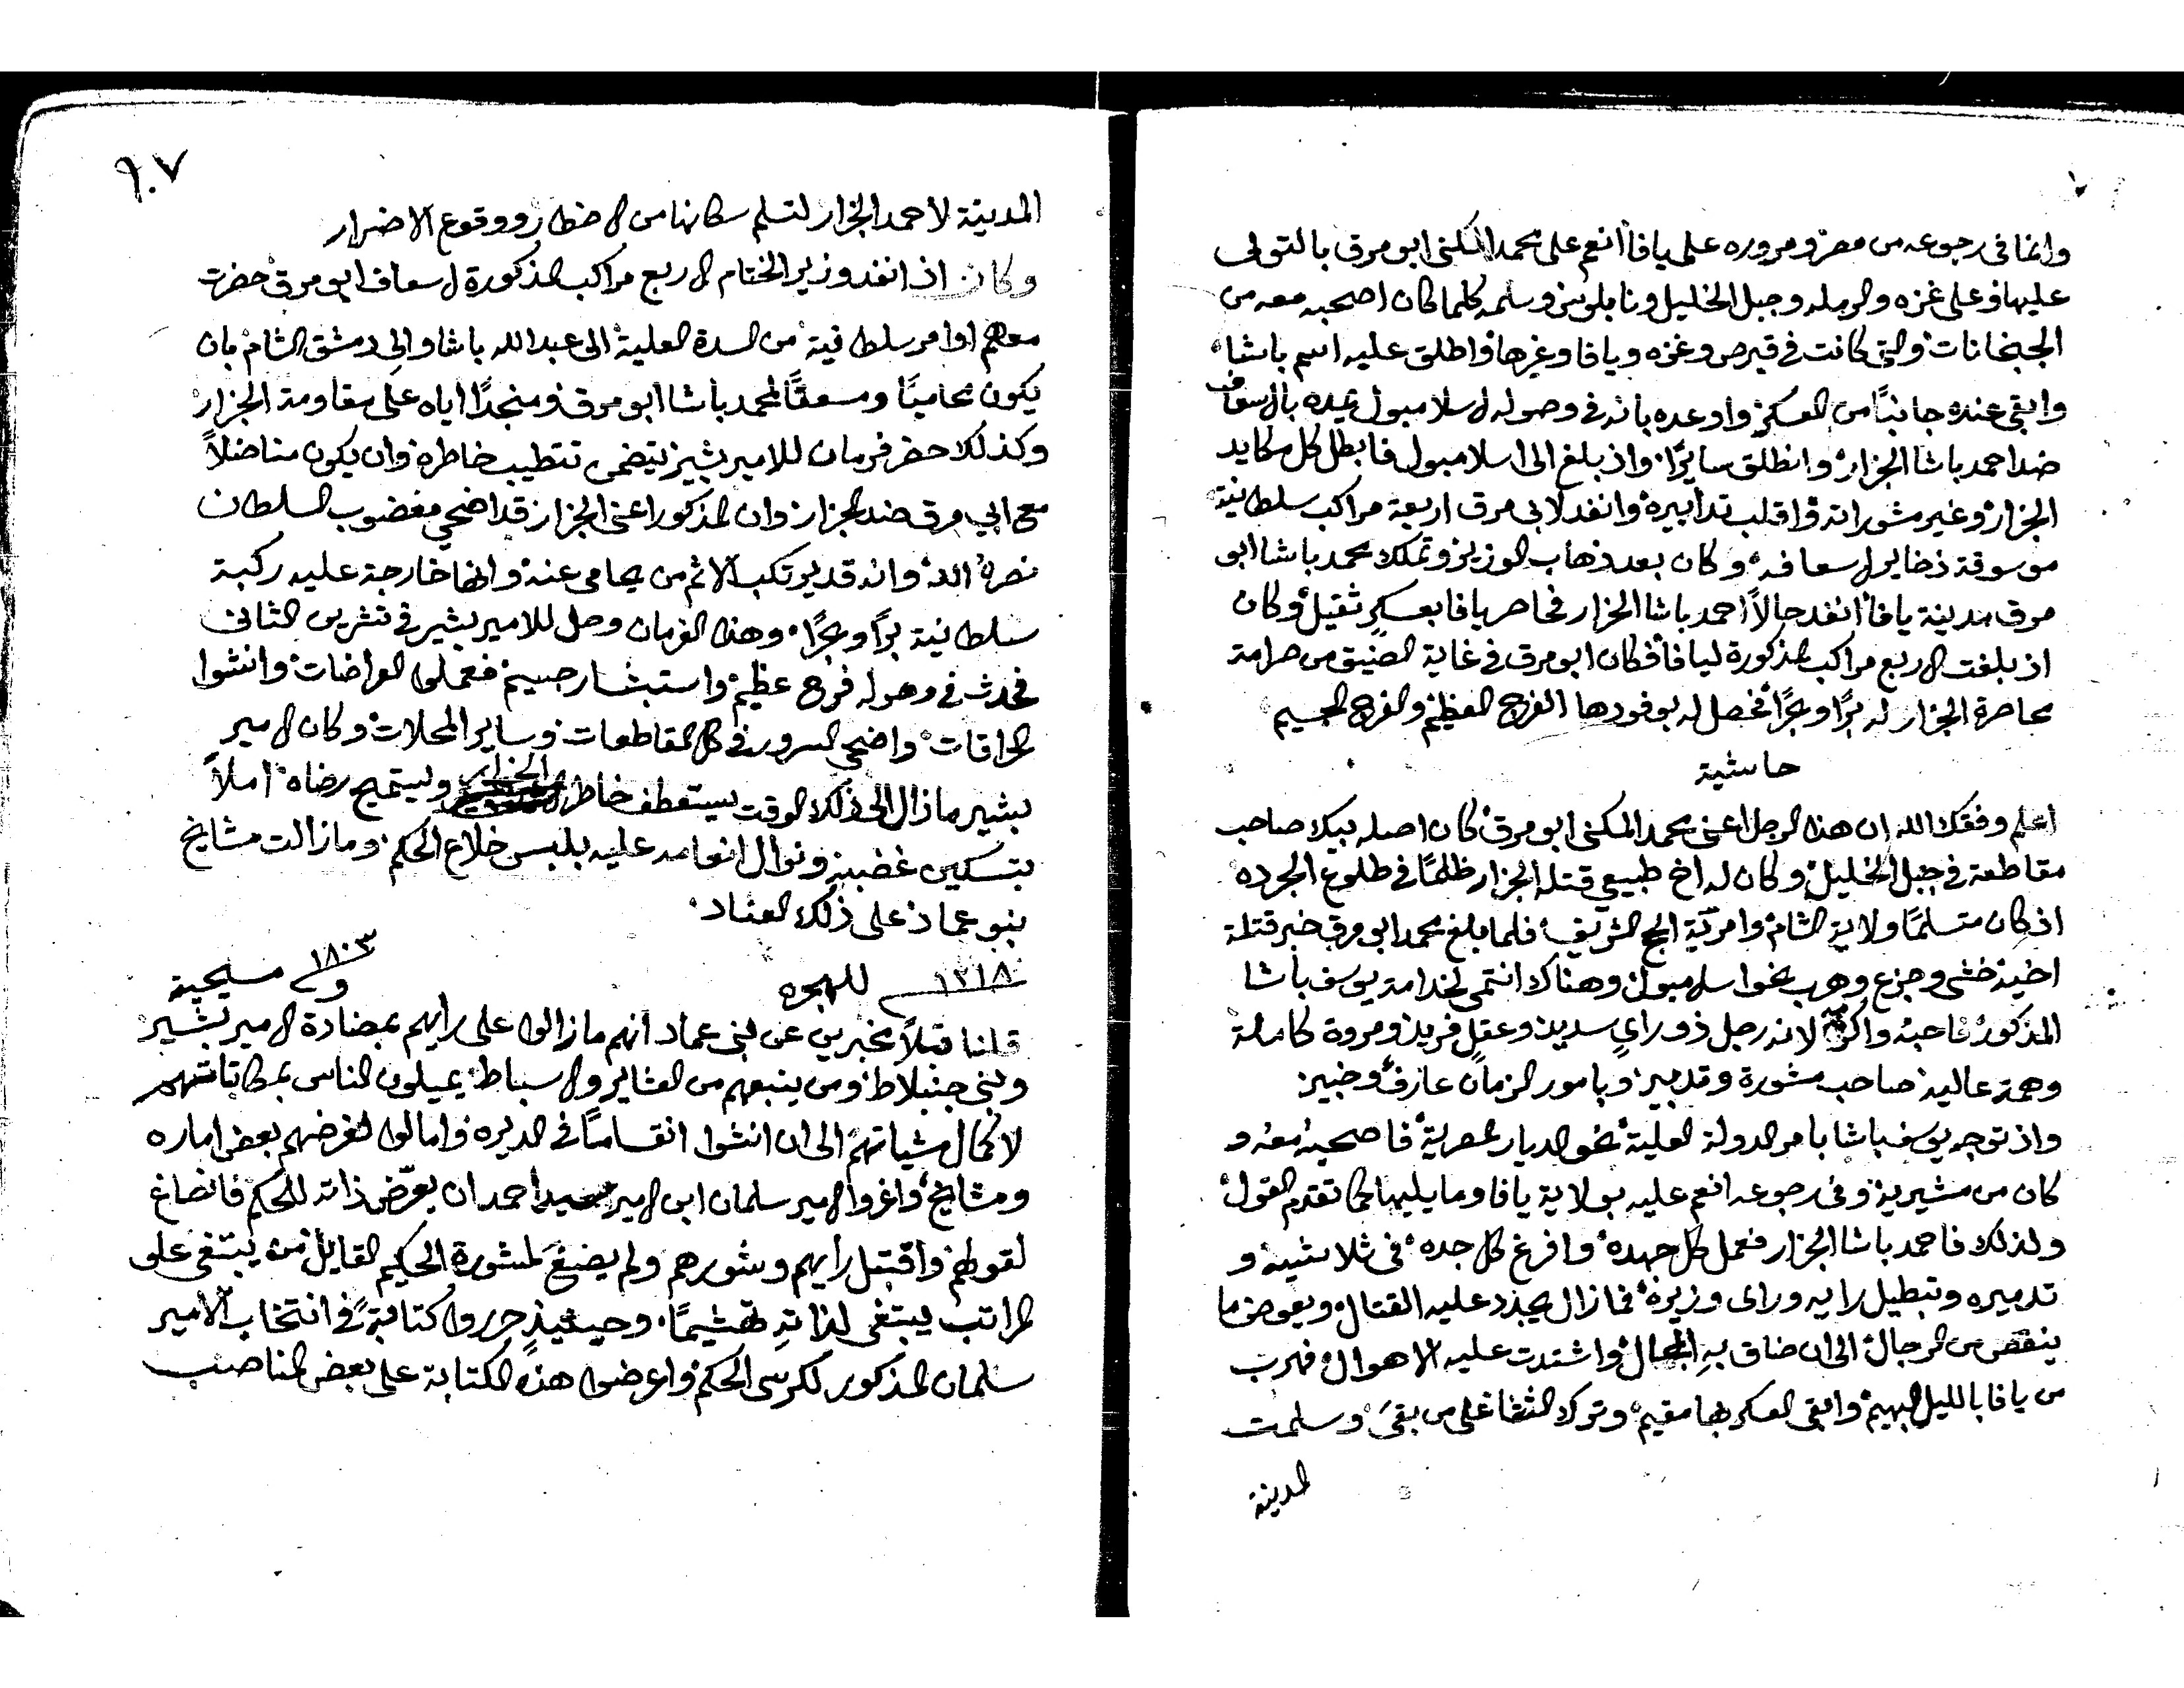 وانما في رجوعه من مصر ومروره على يافا انعم على محمد المكنى ابو مرق بالتولى
عليها وعلى غزه والرمله وجبل الخليل ونابلوس وسلمه كلما كان اصحبه معه من
الجبخانات والتي كانت في قبرص وغزه ويافا وغيرها واطلق عليه اسم باشا
وابقى عنده جانبًا من العسكر واوعده بانه في وصوله لاسلامبول يمده بالاسعاف
ضد احمد باشا الجزار وانطلق سايرًا. واذ بلغ الى اسلامبول فابطل كل مكايد
الجزار وغير مشوراته واقلب تدابيره وانفد لابي مرق اربعة مراكب سلطانية
موسوقة ذخاير لاسعافه وكان بعد ذهاب الوزير وتملك محمد باشا ابو
مرق مدينة يافا انفد حالاً احمد باشا الجزار فحاصر يافا بعسكرٍ ثقيل وكان
اذ بلغت الاربع مراكب المذكورة ليافا فكان ابو مرق في غاية الضيق من صرامة
محاصرة الجزار له برًا وبحرًا فحصل له بوفودها الفرج العظيم والفرح الجسيم
حاشية
اعلم وفقك الله ان هذا الرجل اعني محمد المكنى ابو مرق كان اصله بيك صاحب
مقاطعة في جبل الخليل وكان له اخ طبيعي قتله الجزار ظلمًا في طلوع الجرده
اذ كان متسلمًا ولاية الشام وامريّة الحج الشريف فلما بلغ محمد ابو مرق خبر قتلة
اخيه خشى وجزع وهرب نحو اسلامبول وهناك انتمى لخدامة يوسف باشا
المذكور فاحبه واكرمه لانه رجل ذو رايٍ سديد وعقلٍ فريد ومروة كاملة
وهمة عالية صاحب مشورة وتدبير وبامور الزمان عارف وخبير
واذ توجه يوسف باشا بامر الدولة العلية نحو الديار المصرية فاصحبه معه و
كان من مشيريه وفي رجوعه انعم عليه بولاية يافا وما يليها كما تقدم القول
ولذلك فاحمد باشا الجزار فعمل كل جهده وافرغ كل جده في ثلاشيه و
تدميره وتبطيل رايه وراى وزيره فمازال يجدد عليه القتال ويعوض ما
ينقص من الرجال الى ان ضاق به المجال واشتدت عليه الاهوال فهرب
من يافا بالليل البهيم وابقى العسكر بها مقيم وترك الشقا على من بقىَ وسلمت
المدينة
٩٠٧
المدينة لاحمد الجزار لتسلم سكانها من الاخطار ووقوع الاضرار
وكان اذ انفد وزير الختام الاربع مراكب المذكورة لاسعاف ابو مرق حضرت
معهم اوامر سلطانية من السدة العلية الى عبد الله باشا والي دمشق الشام بان
يكون محاميًا ومسعفًا لمحمد باشا ابو مرق ومنجدًا اياه على مقاومة الجزار
وكذلك حضر فرمان للامير بشير يتضمن تتطيب خاطره وان يكون مناضلاً
مع ابي مرق ضد الجزار وان المذكور اعني الجزار قد اضحى مغضوب السلطان
نصره الله وانه قد يرتكب الاثم من يحامي عنه وانها خارجة عليه ركبة
سلطانية برًا وبحرًا. وهذا الفرمان وصل للامير بشير في تشرين الثاني
فحدث في وصوله فرح عظيم واستبشار جسيم فعملوا العراضات وانشوا
الحراقات واضحى السرور في كل المقاطعات وساير المحلات وكان الامير
بشير مازال الى ذلك الوقت يستعطف خاطر الجزار ويستميح رضاه املاً
بتسكين غضبه ونوال انعامه عليه بلبس خلاع الحكم. ومازالت مشايخ
بنو عماد على ذلك العناد.
١٢١٨ للهجره و ١٨٠٣ مسيحية
قلنا قبلاً مخبرين عن بني عماد انهم مازالوا على رايهم بمضادة الامير بشير
وبني جنبلاط ومن يتبعهم من العشاير والاسباط يميلون الناس بمكاتاتبتهم
لاكمال مشياتهم الى ان انشوا انقسامًا في الديره وامالوا لغرضهم بعض اماره
ومشايخ واغروا الامير سلمان ابن الامير سيد احمد ان يعرّض ذاته للحكم فانصاغ
لقولهم واقتبل رايهم وشورهم ولم يصنغَ لمشورة الحكيم القايل من يبتغي على
المراتب يبتغى لذاتهِ تهشيمًا. وحينئذٍ حرروا كتابةً في انتخاب الامير
سلمان المذكور لكرسي الحكم واعرضوا هذه الكتابة على بعض المناصب